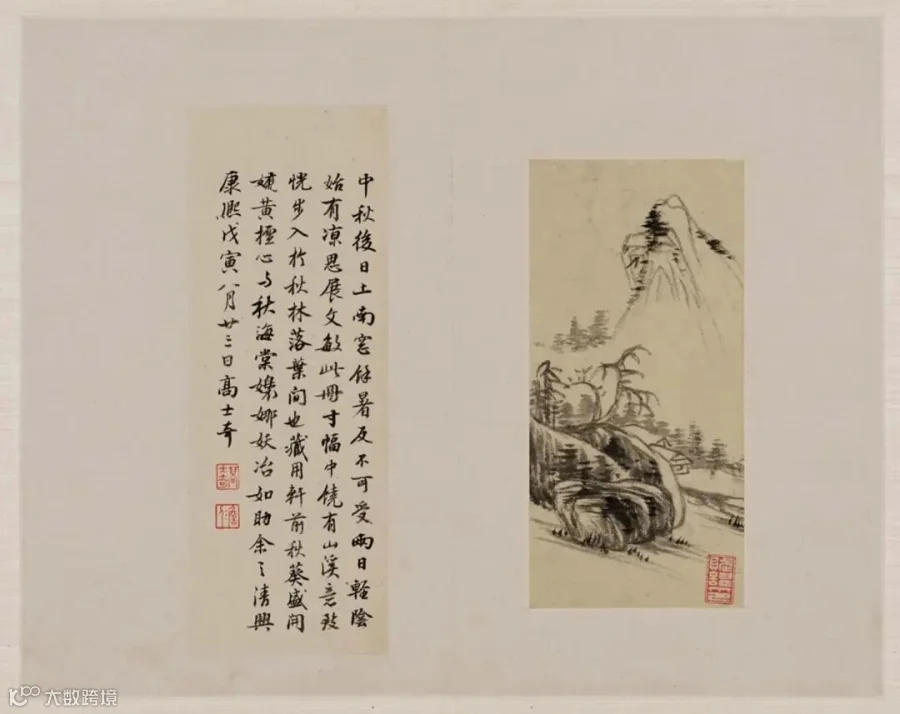 中秋後日土南窓餘暑反不可受兩日輕陰
始有涼思展文敏此冊寸幅中饒有山溪意致
恍步入於秋林落葉間也藏用軒前秋葵盛開
嬌黃檀心与秋海棠嫋娜妖冶如助余之清興
康熙戊寅八月廿二日高士奇
大数跨境